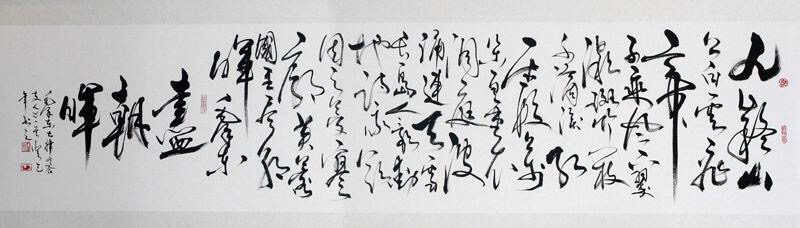 九嶷山
上白雲飛
帝
子乘風下翠
微斑竹一枝
千滴淚紅
霞萬
朵百重衣
洞庭波
涌連天雪
長島人歌動
地詩我欲
因之夢寥
廓芙蓉
國里盡朝
暉毛澤東
盡
朝
暉
毛澤東七律答
友人
年